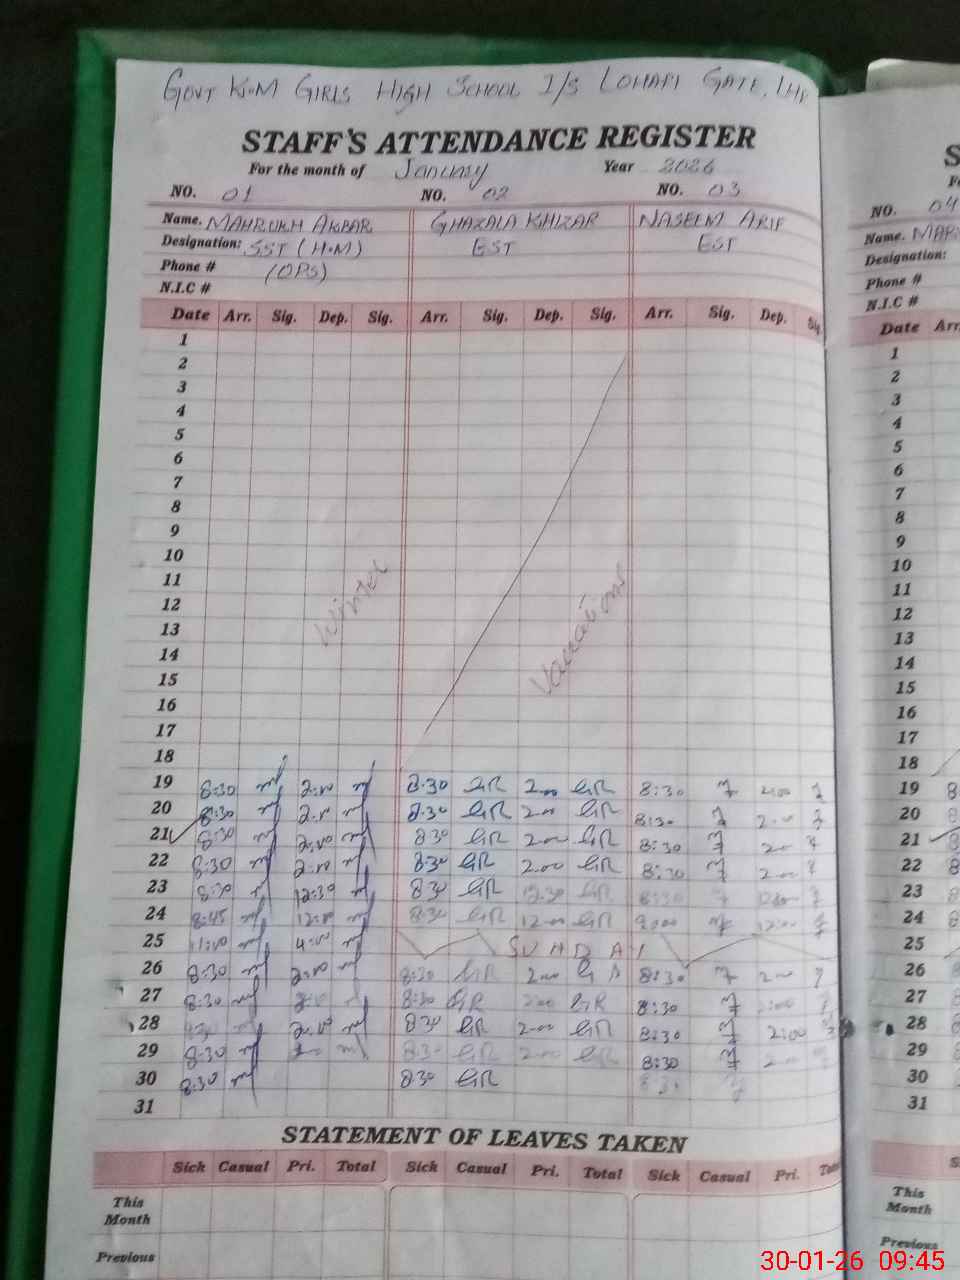 GOVT K.M GIRLS HIGH SCHOOL I/S LOHARI GATE, LHR
STAFF'S ATTENDANCE REGISTER
For the month of January Year 2026
NO. 01 NO. 02 NO. 03
Name. MAHRUKH AKBAR GHAZALA KHIZAR NASEEM ARIF
Designation: SST (H.M) EST EST
Phone # (OPS)
N.I.C #
Date Arr. Sig. Dep. Sig. Arr. Sig. Dep. Sig. Arr. Sig. Dep. Sig.
1
2
3
4
5
6
7
8
9
10
11
12
13
14
15
16
17
18
Winter Vacations
19 8:30 2:00 8:30 GR 2:00 GR 8:30 2:00
20 8:30 2:00 8:30 GR 2:00 GR 8:30 2:00
21 8:30 2:00 8:30 GR 2:00 GR 8:30 2:00
22 8:30 2:00 8:30 GR 2:00 GR 8:30 2:00
23 8:30 12:30 8:30 GR 12:30 GR 8:30
24 8:45 8:30 GR 12:00 GR 12:00
25 11:00 4:00 SUNDAY
26 8:30 2:00 8:30 GR 2:00 8:30 2:00
27 8:30 8:30 GR 2:00 GR 8:30 2:00
28 2:00 8:30 GR 2:00 GR 8:30 2:00
29 8:30 8:30 GR 2:00 GR 8:30 2:00
30 8:30 8:30 GR 8:30
31
STATEMENT OF LEAVES TAKEN
Sick Casual Pri. Total Sick Casual Pri. Total Sick Casual Pri.
This Month
Previous
NO. 04
Name.
Designation:
Phone #
N.I.C #
Date Arr.
1
2
3
4
5
6
7
8
9
10
11
12
13
14
15
16
17
18
19
20
21
22
23
24
25
26
27
28
29
30
31
This Month
Previous
30-01-26 09:45